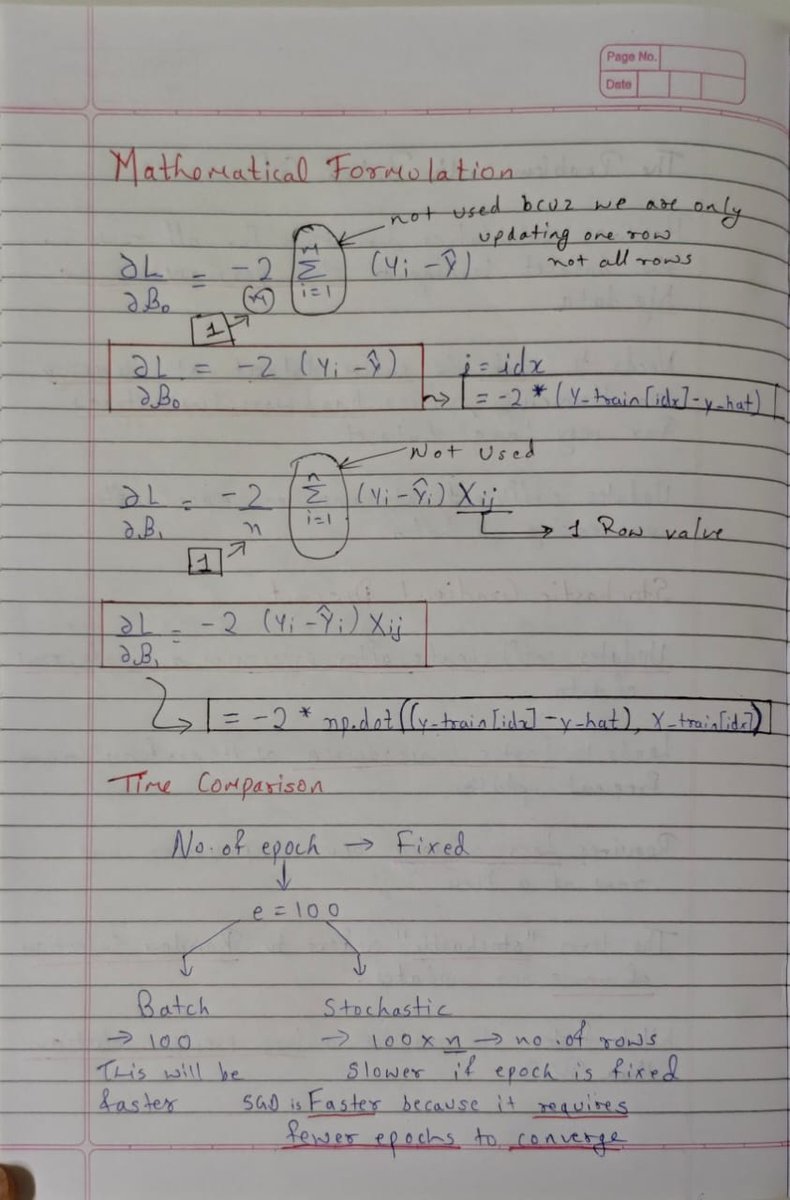 Page No.
Date
Mathematical Formulation
not used bcuz we are only
updating one row
not all rows
∂L/∂B₀ = -2/n Σ i=1 n (Yi - Ŷ)
1
∂L/∂B₀ = -2 (Yi - Ŷ)
i = idx
= -2 * (Y_train[idx] - y_hat)
Not Used
∂L/∂B₁ = -2/n Σ i=1 n (Yi - Ŷi) Xij
1 Row value
1
∂L/∂B₁ = -2 (Yi - Ŷi) Xij
= -2 * np.dot((y_train[idx] - y_hat), X_train[idx])
Time Comparison
No. of epoch → Fixed
e = 100
Batch Stochastic
→ 100 → 100 x n → no. of rows
This will be slower if epoch is fixed
faster SGD is Faster because it requires
fewer epochs to converge